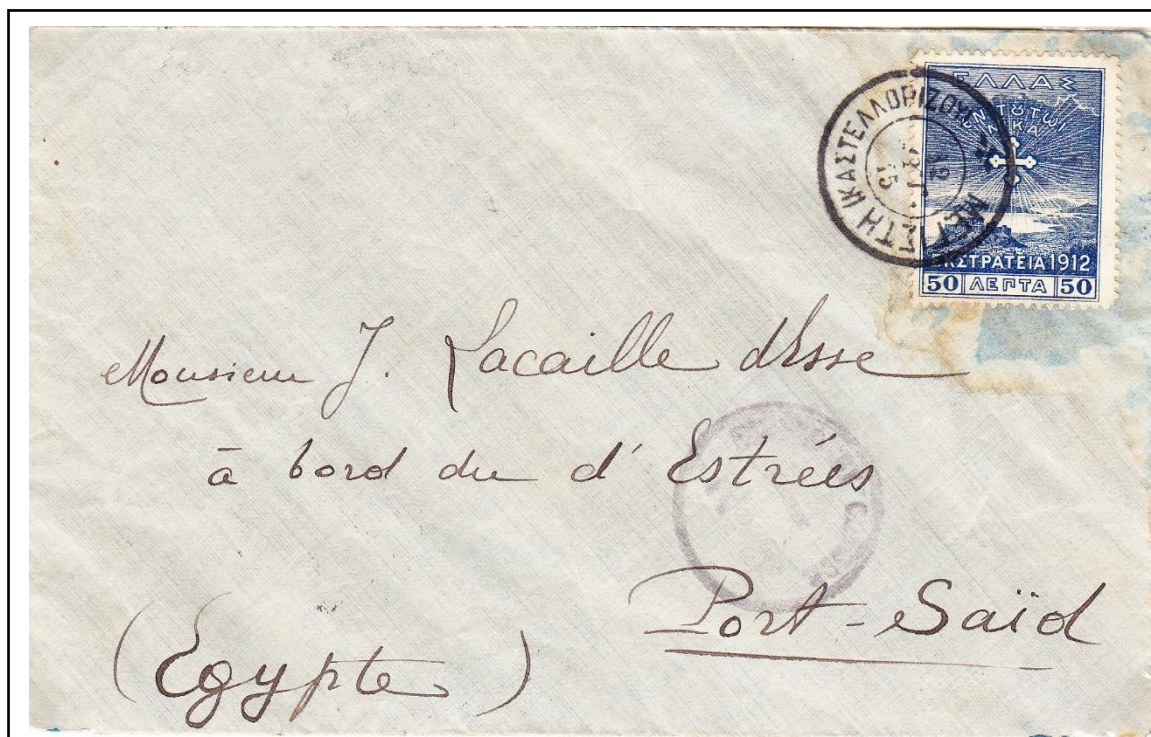 ΕΛΛΑΣ
ΕΚΣΤΡΑΤΕΙΑ 1912
50 ΛΕΠΤΑ 50
ΜΕΓΙΣΤΗ (ΚΑΣΤΕΛΛΟΡΙΖΟΥ)
12
15
Monsieur J. Lacaille d'Esse
à bord du d'Estrées
Port-Saïd
(Egypte)